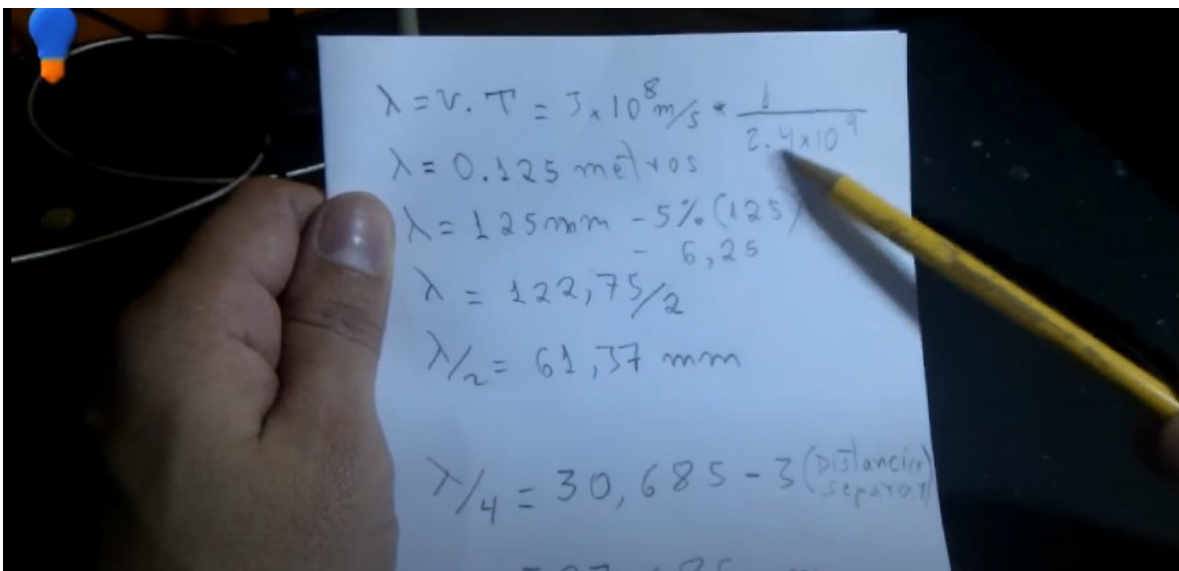 λ = v. T = 3x10⁸ m/s * 1/2.4x10⁹
λ = 0.125 metros
λ = 125mm - 5% (125)
- 6,25
λ = 122,75/2
λ/2 = 61,37 mm
λ/4 = 30,685 - 3 (Distancia
separar)